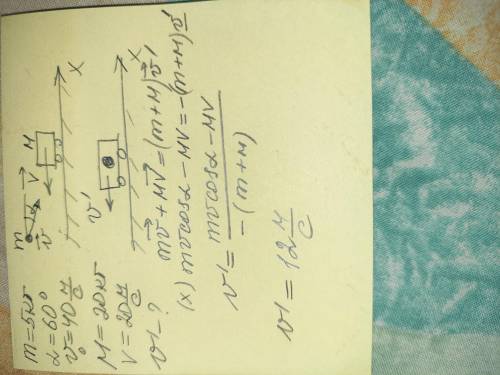 m = 5кг
α = 60°
v = 40 м/с
M = 20кг
V = 20 м/с
v' - ?
m
v
V
M
X
v'
X
mv + MV = (m+M)v'
(x) mvcosα - MV = -(m+M)v'
v' = (mvcosα - MV) / (-(m+M))
v' = 12 м/с